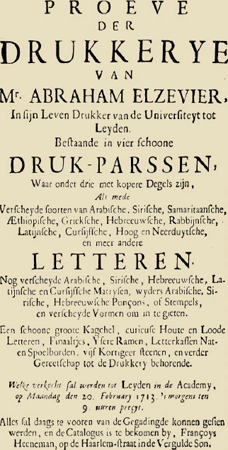 PROEVE
DER
DRUKKERYE
VAN
Mr. ABRAHAM ELZEVIER,
In sijn Leven Drukker van de Universiteyt tot
Leyden.
Bestaande in vier schoone
DRUK-PARSSEN,
Waar onder drie met kopere Degels zijn,
Als mede
Verscheyde soorten van Arabische, Sirische, Samaritaansche,
Æthiopische, Grieksche, Hebreeuwsche, Rabbijnsche,
Latijnsche, Cursijfsche, Hoog en Neerduytsche,
en meer andere
LETTEREN.
Nog verscheyde Arabische, Sirische, Hebreeuwsche, La-
tijnsche en Cursijfsche Matrysen, wyders Arabische, Si-
rische, Hebreeuwsche Ponçons, of Stempels,
en verscheyde Vormen om in te gieten.
Een schoone groote Kagchel, curieuse Houte en Loode
Letteren, Finaaltjes, Ysere Ramen, Letterkassen Nat-
en Spoelborden, vijf Korrigeer steenen, en verder
Gereetschap tot de Drukkery behorende.
Welke verkocht sal werden tot Leyden in de Academy,
op Maandag den 20. February 1713. 's morgens ten
9 uuren precys.
Alles sal daags te vooren van de Gegadingde konnen gesien
werden, en de Catalogus is te bekomen by, Françoys
Heeneman, op de Haarlem-straat in de Vergulde Son.